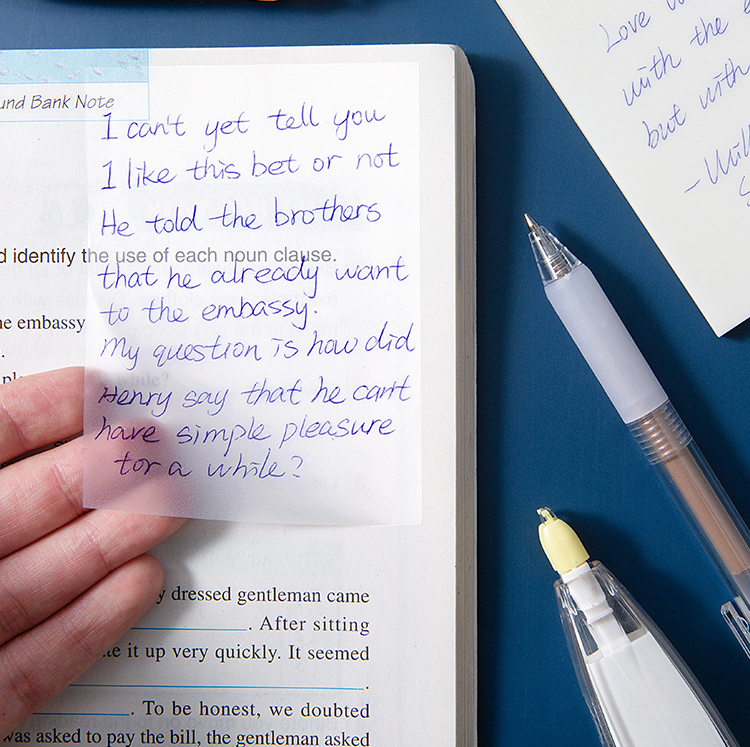 und Bank Note
I can't yet tell you
I like this bet or not
He told the brothers
d identify the use of each noun clause.
that he already want
to the embassy.
he embassy
My question is how did
Henry say that he can't
have simple pleasure
for a while?
y dressed gentleman came
. After sitting
te it up very quickly. It seemed
.
. To be honest, we doubted
was asked to pay the bill, the gentleman asked
Love
with the
but with